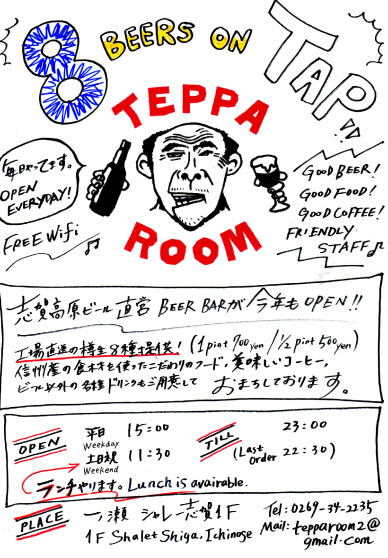 8 BEERS ON TAP!!
TEPPA
ROOM
毎日やってます。
OPEN
EVERYDAY!
FREE WiFi
GOOD BEER!
GOOD FOOD!
GOOD COFFEE!
FRIENDLY
STAFF♪
志賀高原ビール 直営 BEER BARが今年もOPEN!!
工場直送の樽生8種提供! (1pint 700yen / 1/2 pint 500yen)
信州産の食材を使ったこだわりのフード、美味しいコーヒー、
ビール以外の各種ドリンクもご用意して おまちしております。
OPEN 平日 15:00 TILL 23:00
Weekday
土日祝 11:30 (Last order 22:30)
Weekend
ランチやります。Lunch is avairable.
PLACE 一ノ瀬 シャレー志賀1F Tel: 0269-34-2235
1F Shalet Shiga, Ichinose Mail: tepparoom2@
gmail.com